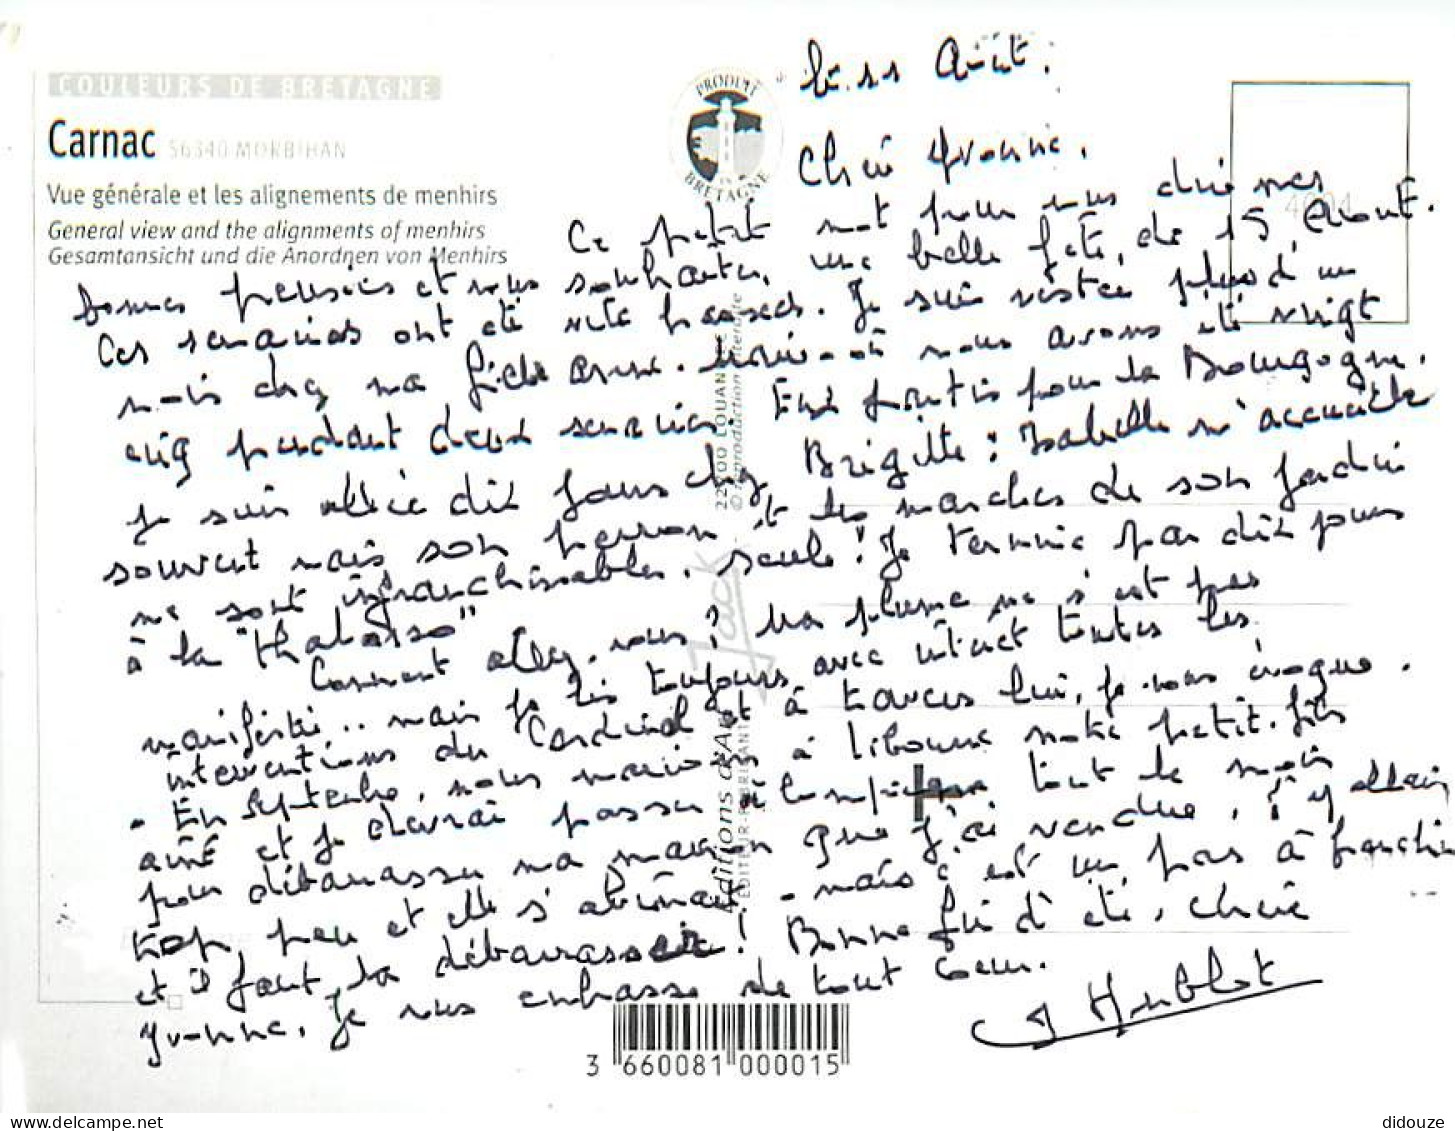 COULEURS DE BRETAGNE
Carnac 56340 MORBIHAN
Vue générale et les alignements de menhirs
General view and the alignments of menhirs
Gesamtansicht und die Anordnen von Menhirs
PRODUIT EN BRETAGNE
le 11 Août.
Chère Yvonne,
Ce petit mot pour vous dire mes
bonnes pensées et vous souhaiter une belle fête de 15 Août.
Ces semaines ont été vite passées. Je suis restée plus d'un
mois chez ma fille Anne-Marie où nous avons été vingt
cinq pendant deux semaines. Eux partis pour la Bourgogne.
Je suis allée dix jours chez Brigitte : Isabelle m'accueille
souvent mais son perron et les marches de son jardin
me sont infranchissables, seule ! Je termine par dix jours
à la "thalasso"
Comment allez-vous ? Ma plume ne s'est pas
manifestée... mais je lis toujours avec intérêt toutes les
interventions du Cardinal et à travers lui, je vous évoque.
- En Septembre, nous marions à Libourne notre petit-fils
aîné et je devrai passer à Compiègne tout le mois
pour débarrasser ma maison que j'ai vendue, j'y allais
trop peu et elle s'abîmait - mais c'est un pas à franchir
et il faut la débarrasser ! Bonne fin d'été, Chère
Yvonne, je vous embrasse de tout coeur.
Hublot
22400 LOUANNEC
© reproduction interdite
Jack
Editions d'Art
EDITEUR-FABRICANT
3 660081 000015
didouze